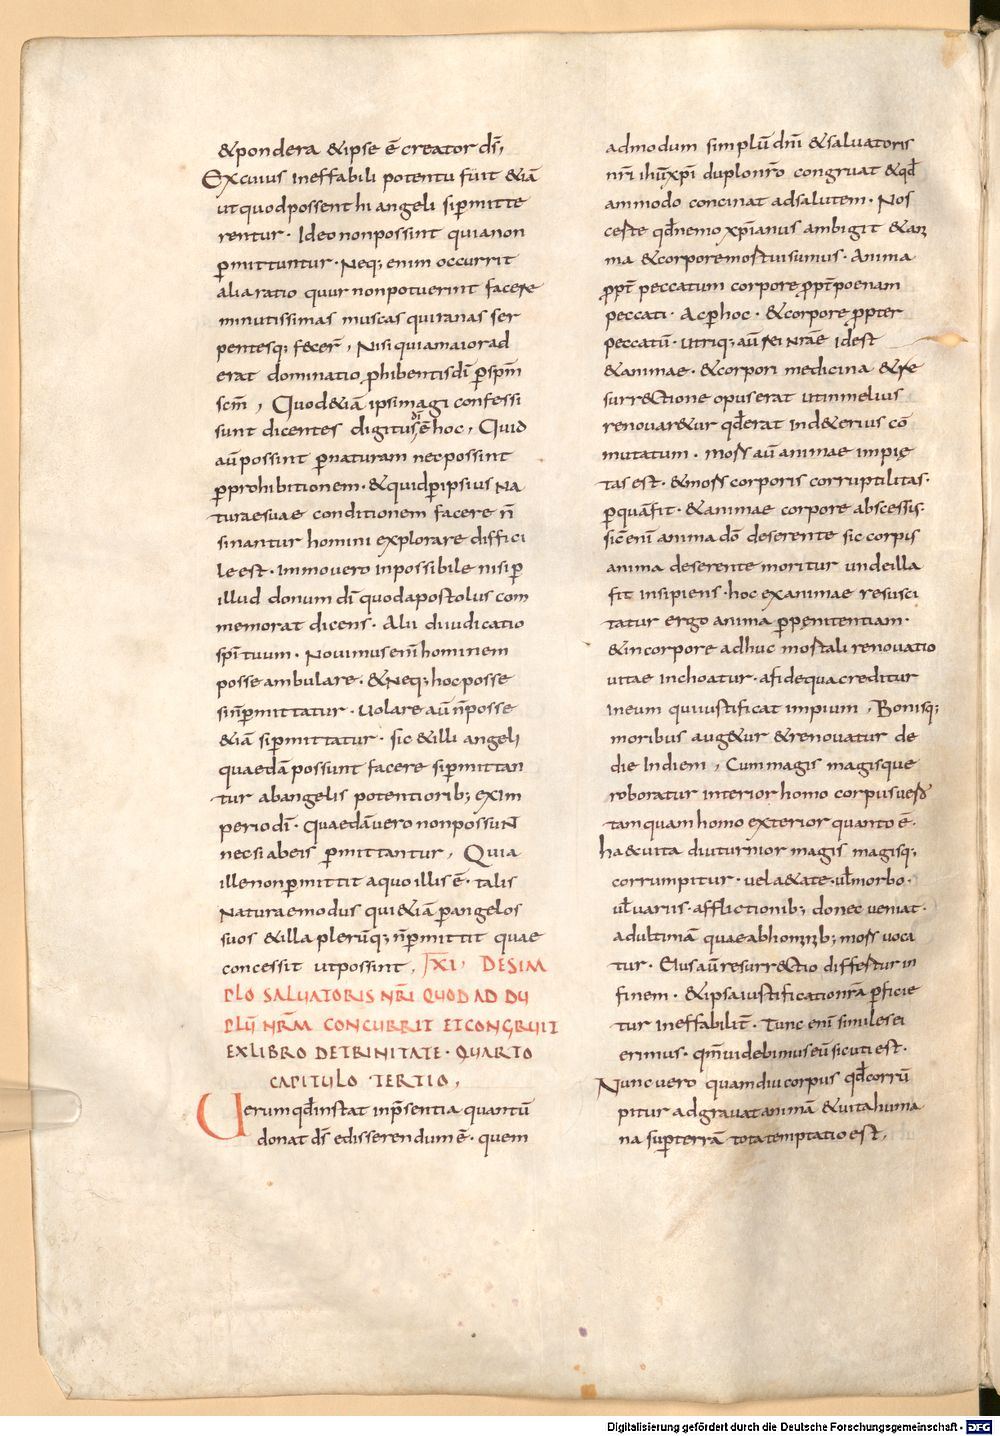 &pondera &ipse ē creator dś;
Excuius ineffabili potentu fiiit &iā
ut quod possent hi angeli si ꝑmitte
rentur · Ideo non possint quia non
ꝑmittuntur · Neq; enim occurrit
alia ratio quur non potuerint facere
minutissimas muscas qui ranas ser
pentesq; fecer̄, Nisi quia maior ad
erat dominatio ꝓhibentis dī ꝑ spm̄
scm̄, Quod &iā ipsi magi confessi
sunt dicentes digitus dī ē hoc, Quid
aū possint ꝑ naturam nec possint
ꝑ prohibitionem · & quid ꝑ ipsius na
turae suae conditionem facere n̄
sinantur homini explorare diffici
le est · Immo vero inpossibile nisi ꝑ
illud donum dī quod apostolus com
memorat dicens · Alii diiudicatio
sp̄i tuum · Novimus enī hominem
posse ambulare · & Neq; hoc posse
si n̄ ꝑmittatur · Uolare aū n̄ posse
&iā si ꝑmittatur · sic & illi angeli
quaedā possunt facere si ꝑmittan
tur ab angelis potentiorib; ex im
perio dī · Quaedā vero non possunt
nec si ab eis ꝑmittantur, Quia
ille non ꝑmittit a quo illis ē · talis
Naturae modus qui &iā ꝑ angelos
suos & illa plerūq; n̄ ꝑmittit quae
concessit ut possint, XI, DE SIM
PLO SALVATORIS NR̄I QUOD AD DU
PLŪ NR̄M CONCURRIT ET CONGRUIT
EX LIBRO DE TRINITATE · QUARTO
CAPITULO TERTIO,
Uerum qđ instat in p̄sentia quantū
donat dś edisserendum ē · quem
admodum simplū dn̄i & saluatoris
nr̄i ihū xp̄i duplo nr̄o congruat & qđ
ammodo concinat ad salutem · Nos
certe qđ nemo xp̄ianus ambigit & ani
ma & corpore mortui sumus · Anima
ꝓpt̄ peccatum corpore ꝓpt̄ poenam
peccati · Ac ꝑ hoc · & corpore ꝓpter
peccatū · utriq; aū rei nr̄ae id est
& animae · & corpori medicina & re
surrectione opus erat ut in melius
renouaretur qđ erat in deterius cō
mutatum · mors aū animae impie
tas est · & mors corporis corruptilitas ·
ꝑ quā fit · & animae corpore abscessis ·
sic enī anima dō deserente sic corpus
anima deserente moritur unde illa
fit insipiens · hoc exanimae resusci
tatur ergo anima ꝑ pęnitentiam ·
& in corpore adhuc mortali renouatio
uitae inchoatur · a fide qua creditur
in eum qui iustificat impium, Bonisq;
moribus aug&ur & renouatur de
die in diem, Cum magis magisque
roboratur interior homo corpus uero
tamquam homo exterior quanto ē ·
haec uita diuturnior magis magisq;
corrumpitur · uel aetate · uł morbo ·
uł uariis · afflictionib; donec ueniat ·
ad ultimā quae ab homnib; mors uoca
tur · Eius aū resurrectio differtur in
finem · & ipsa iustificatio nr̄a ꝑficie
tur ineffabilit̄ · Tunc enī similes ei
erimus · qm̄ uidebimus eū sicuti est ·
Nunc uero quamdiu corpus qđ corrū
pitur adgrauat animā & uita huma
na suꝑ terrā tota temptatio est,
Digitalisierung gefördert durch die Deutsche Forschungsgemeinschaft · DFG